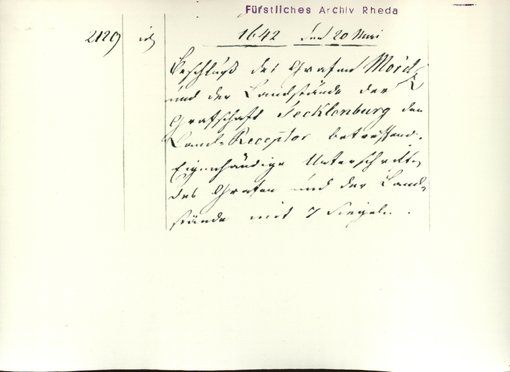 Fürstliches Archiv Rheda
2129 id 1642 den 20 Mai
Beschluß des Grafen Moritz
und der Landstände der
Grafschaft Tecklenburg den
Land-Receptor betreffend.
Eigenhändige Unterschriften
des Grafen und der Land-
stände mit 7 Siegeln.